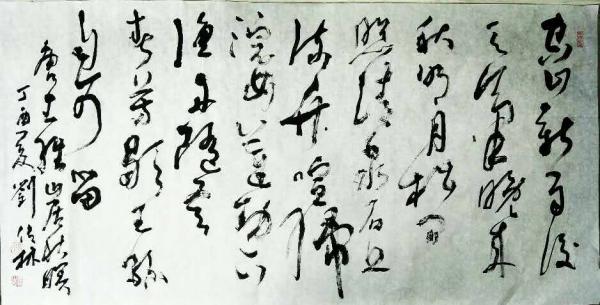 空山新雨後
天氣晚來
秋明月松间
照清泉石上
流竹喧歸
浣女蓮動下
漁舟隨意
春芳歇王孫
自可留
唐王維山居秋暝
丁酉夏劉林